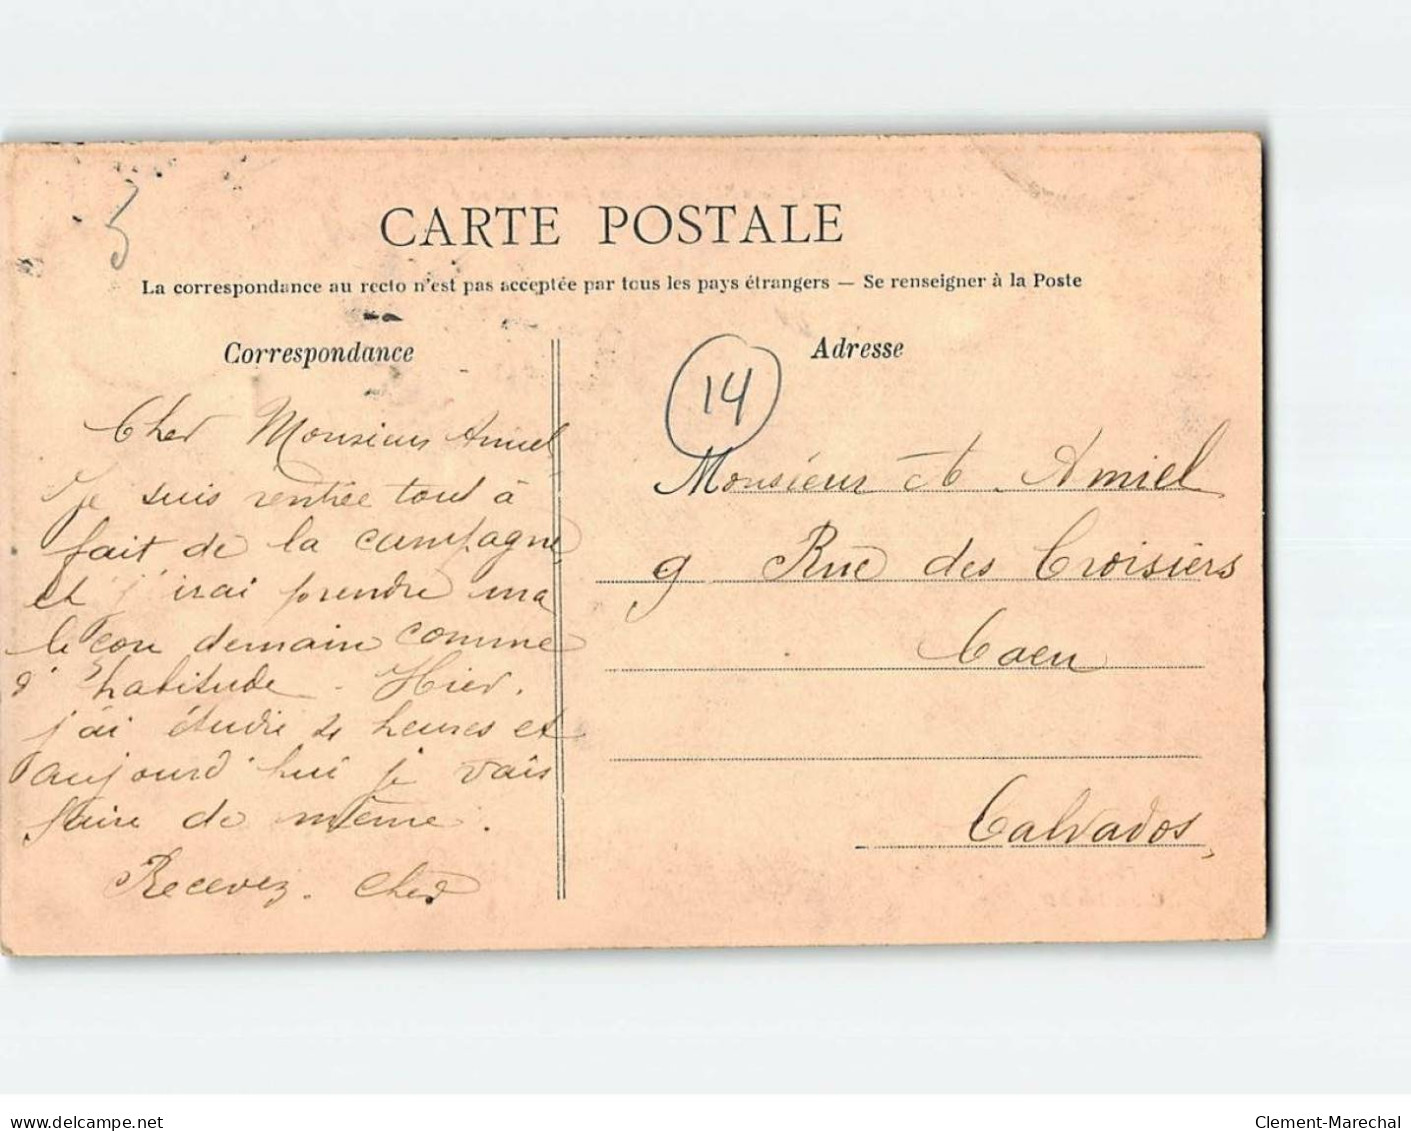 5
CARTE POSTALE
La correspondance au recto n'est pas acceptée par tous les pays étrangers — Se renseigner à la Poste
Correspondance
Cher Monsieur Amiel
Je suis rentrée tout à
fait de la campagne
et j'irai prendre ma
leçon demain comme
d'habitude - Hier.
j'ai étudié 4 heures et
aujourd'hui je vais
faire de même.
Recevez. Cher
Adresse
14
Monsieur Amiel
9 Rue des Croisiers
Caen
Calvados
www.delcampe.net
Clement-Marechal